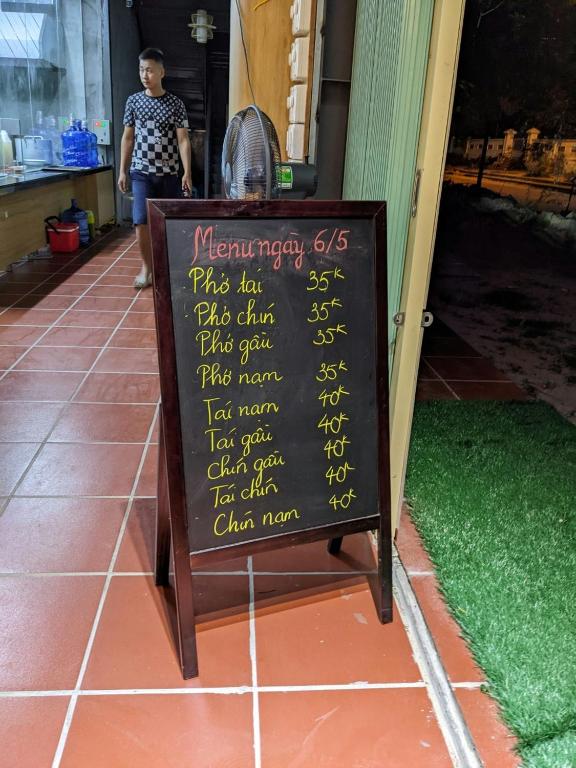 Menu ngày 6/5
Phở tái 35K
Phở chín 35K
Phở gầu 35K
Phở nạm 35K
Tái nạm 40K
Tái gầu 40K
Chín gầu 40K
Tái chín 40K
Chín nạm 40K